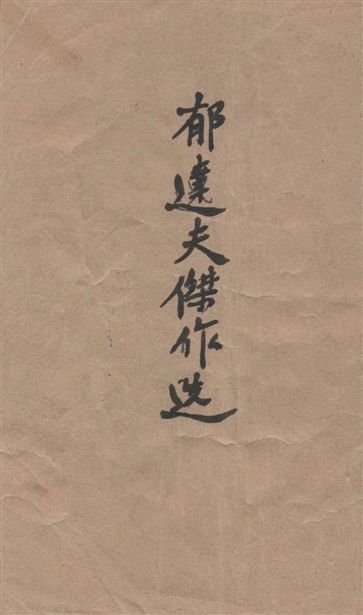 郁達夫傑作选